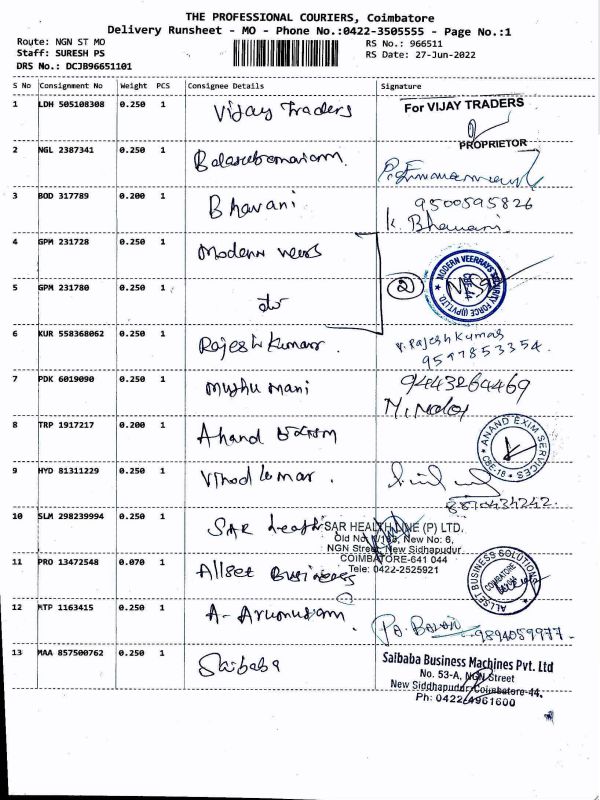 THE PROFESSIONAL COURIERS, Coimbatore
Delivery Runsheet - MO - Phone No.:0422-3505555 - Page No.:1
Route: NGN ST MO
RS No.: 966511
Staff: SURESH PS
RS Date: 27-Jun-2022
DRS No.: DCJB96651101
S No Consignment No Weight PCS Consignee Details Signature
1 LDH 505108308 0.250 1 Vijay Traders For VIJAY TRADERS
PROPRIETOR
2 NGL 2387341 0.250 1 Balasubramaniam
3 BOD 317789 0.200 1 Bhavani 9500595826
K. Bhavani
4 GPM 231728 0.250 1 Modern veers
MODERN VEERRAYS SECURITY FORCE (I) PVT LTD
5 GPM 231780 0.250 1 do 2
6 KUR 558368062 0.250 1 Rajesh Kumar . v. Rajesh Kumar
9597853354.
7 PDK 6019090 0.250 1 Muthu mani 9443264469
8 TRP 1917217 0.200 1 Anand
ANAND EXIM SERVICES CBE-18
9 HYD 81311229 0.250 1 Vinod kumar .
8870434242.
10 SLM 298239994 0.250 1 SAR health
SAR HEALTH LINE (P) LTD.
Old No: 1/183, New No: 6,
NGN Street, New Sidhapudur
COIMBATORE-641 044
Tele: 0422-2525921
11 PRO 13472548 0.070 1 Allset Business
ALLSET BUSINESS SOLUTIONS COIMBATORE
12 MTP 1163415 0.250 1 A- Arumugam 9894059977-
13 MAA 857500762 0.250 1 Saibaba
Saibaba Business Machines Pvt. Ltd
No. 53-A, NGN Street
New Siddhapudur, Coimbatore-44.
Ph: 0422-4961600